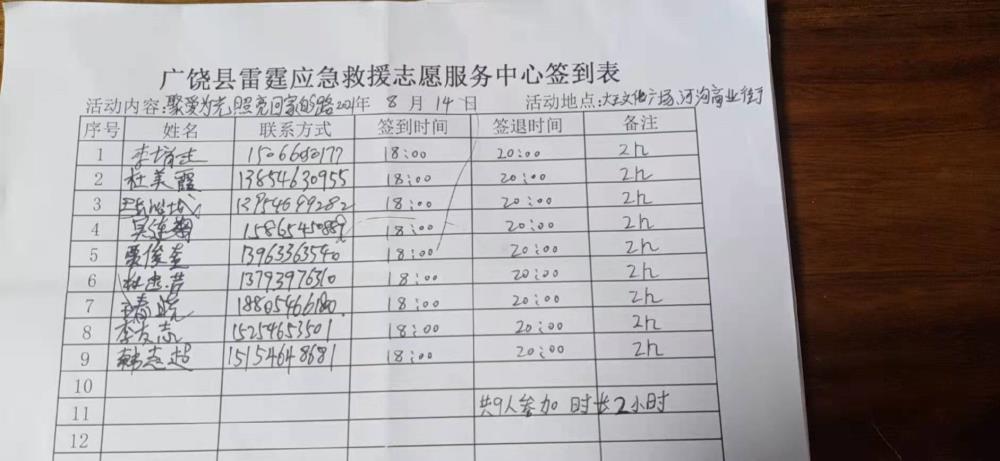 广饶县雷霆应急救援志愿服务中心签到表
活动内容:聚爱为光,照亮回家的路2021年 8 月 14 日 活动地点:大王文化广场,河沟商业街
序号 姓名 联系方式 签到时间 签退时间 备注
1 18:00 20:00 2h
2 杜美霞 13854630955 18:00 20:00 2h
3 18:00 20:00 2h
4 18:00 20:00 2h
5 聂俊奎 13963363540 18:00 20:00 2h
6 13793976310 18:00 20:00 2h
7 18805466180 18:00 20:00 2h
8 李友志 15254653501 18:00 20:00 2h
9 韩志超 15154648681 18:00 20:00 2h
10
11 共9人参加 时长2小时
12